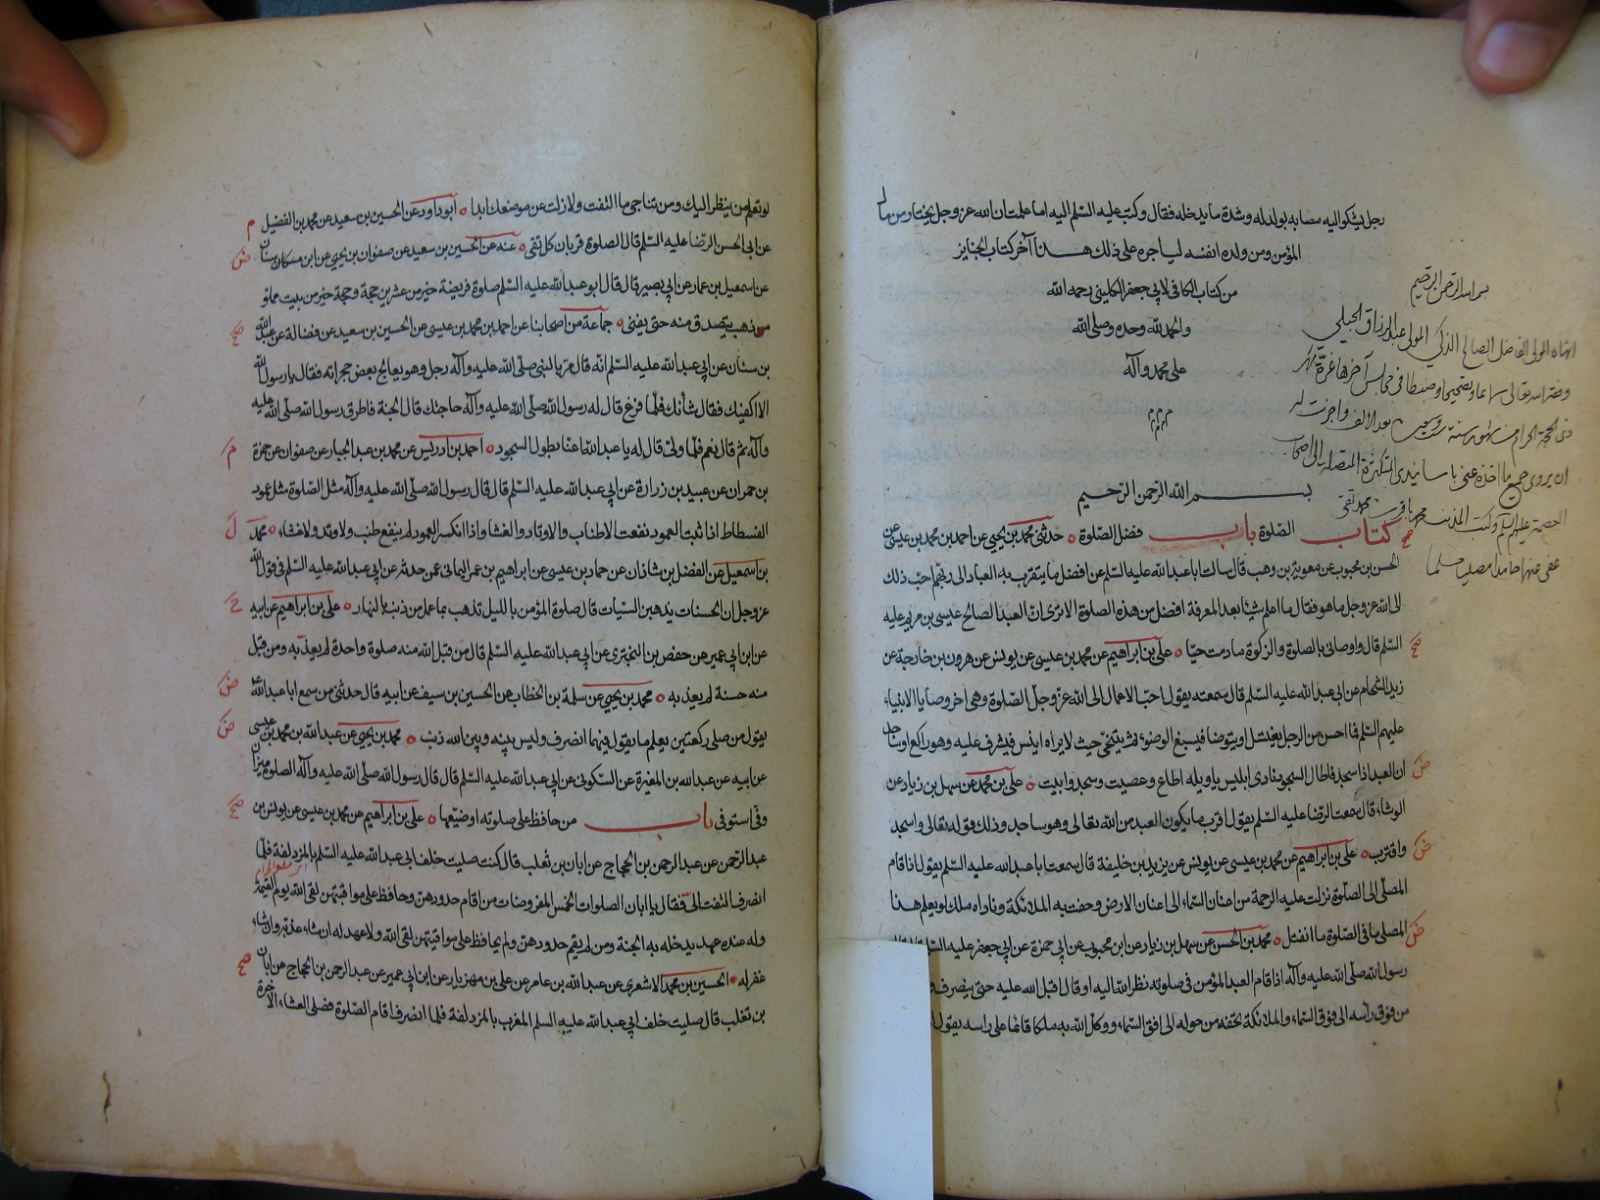 رجل يشكو اليه مصابه بولد له وشدة ما يدخله فقال وكتب عليه السّلم اليه اما علمت ان الله عز وجل يختار من مال
المؤمن ومن ولده انفسه ليأجره على ذلك هذا آخر كتاب الجنايز
من كتاب الكافى لابى جعفر الكلينى رحمه الله
والحمد لله وحده وصلى الله
على محمد وآله
م م م
بسم الله الرحمن الرحيم
كتاب الصلوة باب فضل الصّلوة ٥ حدثنى محمد بن يحيى عن احمد بن محمد بن عيسى عن
الحسن بن محبوب عن معوية بن وهب قال سالت ابا عبد الله عليه السّلم عن افضل ما يتقرب به العباد الى ربهم احب ذلك
الى الله عز وجل ما هو فقال ما اعلم شيئا بعد المعرفة افضل من هذه الصلوة الا ترى ان العبد الصالح عيسى بن مريم عليه
السّلم قال واوصانى بالصلوة والزكوة ما دمت حيّا ٥ على بن ابراهيم عن محمد بن عيسى عن يونس عن هرون بن خارجة عن
زيد الشحام عن ابى عبد الله عليه السّلم قال سمعته يقول احبّ الاعمال الى الله عزّ وجلّ الصّلوة وهى آخر وصايا الانبياء
عليهم السّلم فما احسن من الرجل يغتسل او يتوضا فيسبغ الوضوء ثم يتنحّى حيث لا يراه انيس فيشرف عليه وهو راكع او ساجد
ان العبد اذا سجد فاطال السجود نادى ابليس يا ويله اطاع وعصيت وسجد وابيت ٥ على بن محمد عن سهل بن زياد عن
الوشاء قال سمعت الرضا عليه السّلم يقول اقرب ما يكون العبد من الله تعالى وهو ساجد وذلك قوله تعالى واسجد
واقترب ٥ على بن ابراهيم عن محمد بن عيسى عن يونس عن يزيد بن خليفة قال سمعت ابا عبد الله عليه السّلم يقول اذا قام
المصلّى الى الصّلوة نزلت عليه الرحمة من اعنان السّماء الى اعنان الارض وحفت به الملائكة وناداه ملك لو يعلم هذا
المصلى ما فى الصّلوة ما انفتل ٥ محمد بن الحسن عن سهل بن زياد عن ابن محبوب عن ابى حمزة عن ابى جعفر عليه
رسول الله صلّى الله عليه وآله اذا قام العبد المؤمن فى صلوته نظر الله اليه او قال اقبل الله عليه حتى ينصرف
من فوق راسه الى فوق السّماء والملائكة تحفه من حوله الى افق السّماء ووكل الله به ملكا قائما على راسه يقول
بسم الله الرحمن الرحيم
انهاه المولى الفاضل الصالح الذكى المولى عبد الرزاق الجبلى
وفقه الله تعالى سماعا وتصحيحا وضبطا فى مجالس آخرها غرة شهر
ذى الحجة الحرام من شهور سنة بعد الالف واجزت له
ان يروى جميع ما اخذه عنى باسانيدى المتكثرة المتصلة الى اصحاب
العصمة عليهم السلم وكتب المذنب محمد باقر بن محمد تقى
عفى عنهما حامدا مصليا مسلما
لو تعلم من ينظر اليك ومن تناجى ما التفت ولا زلت عن موضعك ابدا ٥ ابو داود عن الحسين بن سعيد عن محمد بن الفضيل
عن ابى الحسن الرّضا عليه السّلم قال الصلوة قربان كل تقى ٥ عنه عن الحسين بن سعيد عن صفوان بن يحيى عن ابن مسكان
عن اسمعيل بن عمار عن ابى بصير قال قال ابو عبد الله عليه السّلم صلوة فريضة خير من عشرين حجة وحجة خير من بيت مملو
ذهب يتصدق منه حتى يفنى ٥ جماعة من اصحابنا عن احمد بن محمد بن عيسى عن الحسين بن سعيد عن فضالة عن عبد الله
بن سنان عن ابى عبد الله عليه السّلم انّه قال مر بالنبى صلّى الله عليه وآله رجل وهو يعالج بعض حجراته فقال يا رسول الله
الا اكفيك فقال شأنك فلمّا فرغ قال له رسول الله صلّى الله عليه وآله حاجتك قال الجنة فاطرق رسول الله صلّى الله عليه
وآله ثم قال نعم فلمّا ولى قال له يا عبد الله اعنّا بطول السجود ٥ احمد بن ادريس عن محمد بن عبد الجبار عن صفوان عن حمزة
بن حمران عن عبيد بن زرارة عن ابى عبد الله عليه السّلم قال قال رسول الله صلّى الله عليه وآله مثل الصّلوة مثل عمود
الفسطاط اذا ثبت العمود نفعت الاطناب والاوتاد والغشا واذا انكسر العمود لم ينفع طنب ولا وتد ولا غشاء ٥ محمد
بن اسمعيل عن الفضل بن شاذان عن حماد بن عيسى عن ابراهيم بن عمر اليمانى عمن حدثه عن ابى عبد الله عليه السّلم فى قول الله
عز وجل ان الحسنات يذهبن السّيات قال صلوة المؤمن بالليل تذهب بما عمل من ذنب بالنهار ٥ على بن ابراهيم عن ابيه
عن ابن ابى عمير عن حفص بن البخترى عن ابى عبد الله عليه السّلم قال من قبل الله منه صلوة واحدة لم يعذّبه ومن قبل
منه حسنة لم يعذبه ٥ محمد بن يحيى عن سلمة بن الخطاب عن الحسين بن سيف عن ابيه قال حدثنى من سمع ابا عبد الله
يقول من صلى ركعتين يعلم ما يقول فيهما انصرف وليس بينه وبين الله ذنب ٥ محمد بن يحيى عن عبد الله بن محمد بن عيسى
عن ابيه عن عبد الله بن المغيرة عن السّكونى عن ابى عبد الله عليه السّلم قال قال رسول الله صلّى الله عليه وآله الصلوة ميزان
وفّى استوفى باب من حافظ على صلوته او ضيّعها ٥ على بن ابراهيم عن محمد بن عيسى عن يونس بن
عبد الرّحمن عن عبد الرحمن بن الحجاج عن ابان بن تغلب قال كنت صليت خلف ابى عبد الله عليه السّلم بالمزدلفة فلمّا
انصرف التفت الىّ فقال يا ابان الصلوات الخمس المفروضات من اقام حدودهن وحافظ على مواقيتهن لقى الله يوم القيمة
وله عنده عهد يدخله به الجنة ومن لم يقم حدودهن ولم يحافظ على مواقيتهن لقى الله ولا عهد له ان شاء عذبه وان شاء
غفر له ٥ الحسين بن محمد الاشعرى عن عبد الله بن عامر عن على بن مهزيار عن ابن ابى عمير عن عبد الرحمن بن الحجاج عن ابان
بن تغلب قال صليت خلف ابى عبد الله عليه السلم المغرب بالمزدلفة فلما انصرف اقام الصّلوة فصلى العشاء الآخرة